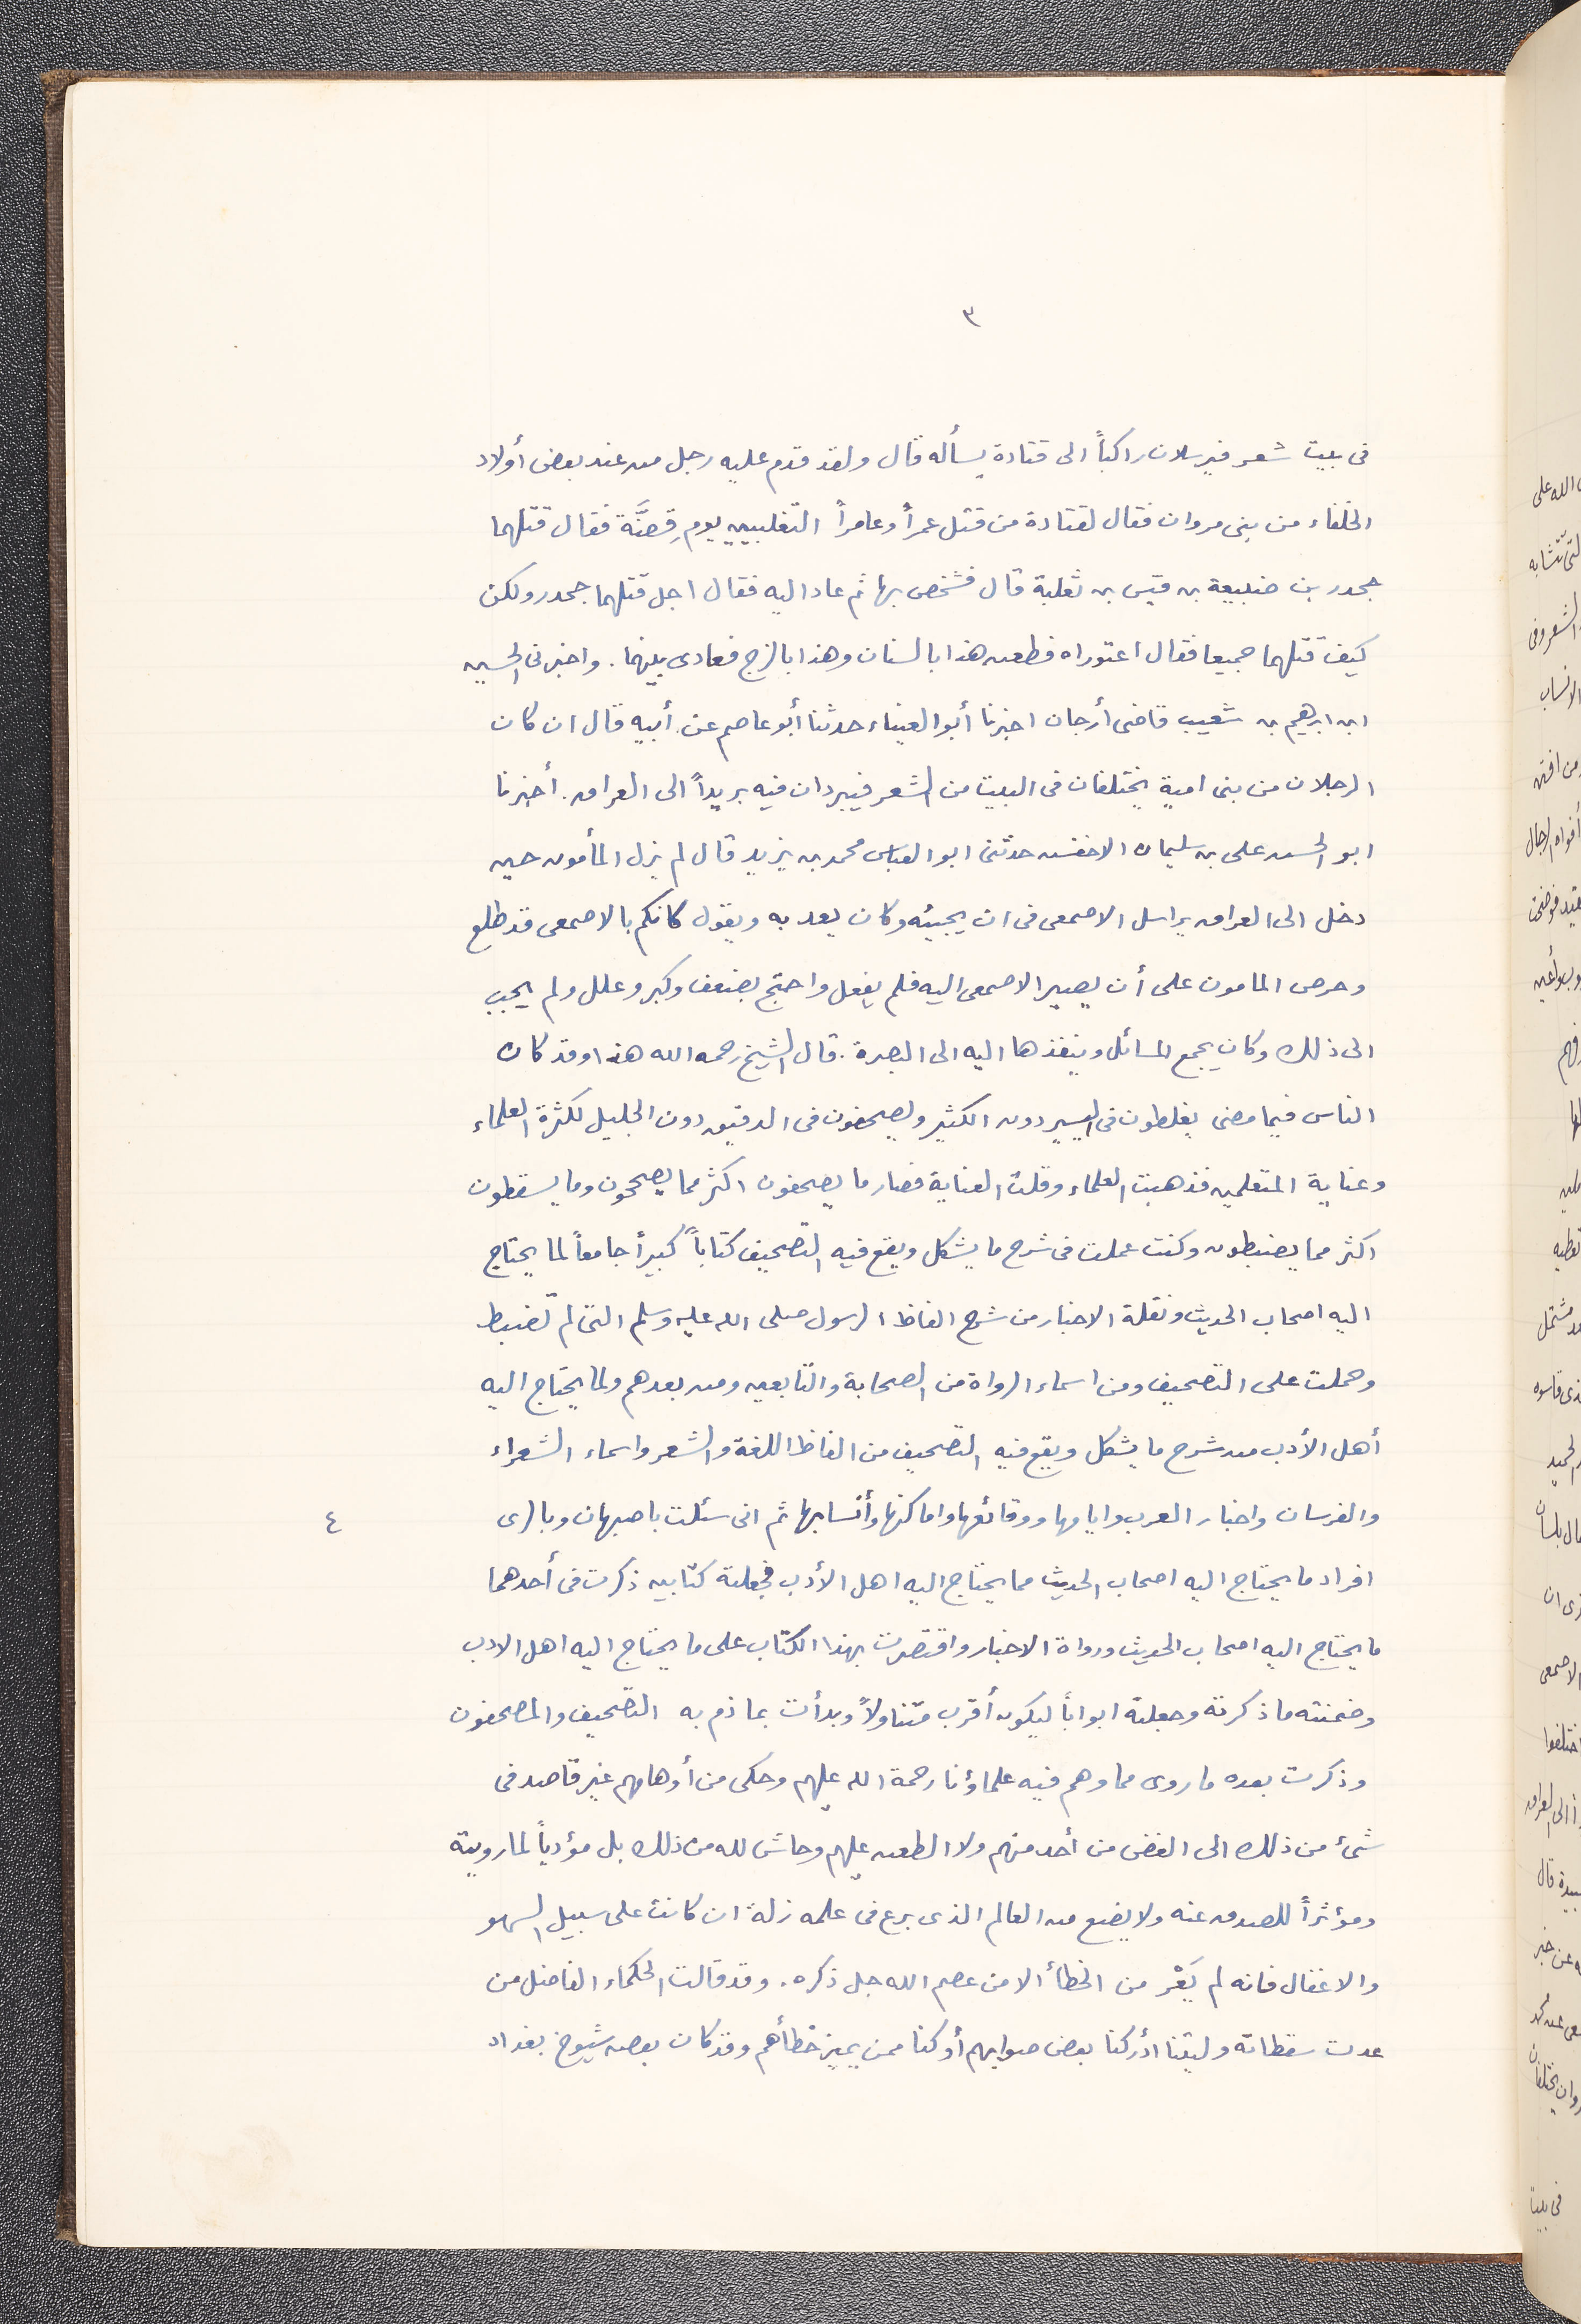 ٣
فى بيت شعر فيرسلان راكباً الى قتادة يسأله قال ولقد قدم عليه رجل من عند بعض أولاد
الخلفاء من بنى مروان فقال لقتادة من قتل عمراً وعامراً التغلبيين يوم قِضَّة فقال قتلهما
جحدر بن ضبيعة بن قيس بن ثعلبة قال فشخص بها ثم عاد اليه فقال اجل قتلهما جحدر ولكن
كيف قتلهما جميعا فقال اعتوراه فطعن هذا بالسنان وهذا بالزج فعادى بينهما. واخبرنى الحسين
ابن ابرهيم بن شعيب قاضى أرجان اخبرنا أبو العيناء حدثنا أبو عاصم عن أبيه قال ان كان
الرجلان من بنى امية يختلفان فى البيت من الشعر فيبردان فيه بريداً الى العراق. أخبرنا
ابو الحسن على بن سليمان الاخفش حدثنى ابو العباس محمد بن يزيد قال لم يزل المأمون حين
دخل الى العراق يراسل الاصمعى فى ان يجيئه وكان يعد به ويقول كانكم بالاصمعى قد طلع
وحرص المامون على أن يصير الاصمعى اليه فلم يفعل واحتج بضعف وكبر وعلل ولم يجب
الى ذلك وكان يجمع المسائل وينفذها اليه الى البصرة. قال الشيخ رحمه الله هذا وقد كان
الناس فيما مضى يغلطون فى اليسير دون الكثير ويصحفون فى الدقيق دون الجليل لكثرة العلماء
وعناية المتعلمين فذهبت العلماء وقلت العناية فصار ما يصحفون اكثر مما يصححون وما يسقطون
اكثر مما يضبطون وكنت عملت فى شرح ما يشكل ويقع فيه التصحيف كتاباً كبيراً جامعاً لما يحتاج
اليه اصحاب الحديث ونقلة الاخبار من شرح الفاظ الرسول صلى الله عليه وسلم التى لم تضبط
وحملت على التصحيف ومن اسماء الرواة من الصحابة والتابعين ومن بعدهم ولما يحتاج اليه
أهل الأدب من شرح ما يشكل ويقع فيه التصحيف من الفاظ اللغة والشعر واسماء الشعراء
والفرسان واخبار العرب وايامها ووقائعها واماكنها وأنسابها ثم انى سئلت باصبهان وبالرى
٤
افراد ما يحتاج اليه اصحاب الحديث مما يحتاج اليه اهل الأدب فجعلته كتابين ذكرت فى أحدهما
ما يحتاج اليه اصحاب الحديث ورواة الاخبار واقتصرت بهذا الكتاب على ما يحتاج اليه اهل الادب
وضمنته ما ذكرته وجعلته ابواباً ليكون أقرب متناولاً وبدأت بما ذم به التصحيف والمصحفون
وذكرت بعده ما روى مما وهم فيه علماؤنا رحمة الله عليهم وحكى من أوهامهم غير قاصد فى
شئ من ذلك الى الغض من أحد منهم ولا الطعن عليهم وحاش لله من ذلك بل مؤدياً لما رويته
ومؤثراً للصدق عنه ولا يضع من العالم الذى برع فى علمه زلة ان كانت على سبيل السهو
والاغفال فانه لم يَعْرَ من الخطأ الا من عصم الله جل ذكره. وقد قالت الحكماء الفاضل من
عدت سقطاته وليتنا ادركنا بعض صوابهم أو كنا ممن يميز خطأهم وقد كان بعض شيوخ بغداد